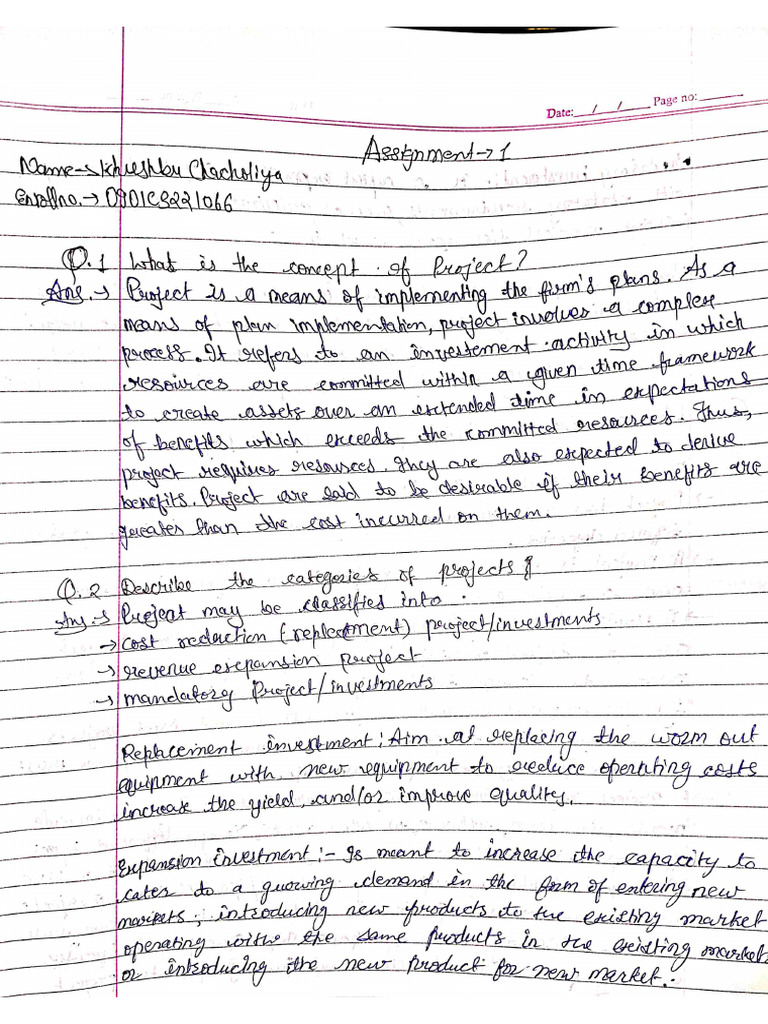 Date: / / Page no:
Assignment → 1
Name → Khushbu Chacholiya
Enrollno. → 0901CS221066
Q.1 What is the concept of Project?
Ans. → Project is a means of implementing the firm's plans. As a
means of plan implementation, project involves a complex
process. It refers to an investement activity in which
resources are committed within a given time framework
to create assets over an extended time in expectations
of benefits which exceeds the committed resources. Thus,
project requires resources. They are also expected to derive
benefits. Project are said to be desirable if their benefits are
greater than the cost incurred on them.
Q.2 Describe the categories of projects?
Ans. → Project may be classified into :
→ cost reduction (replacement) project/investments
→ revenue expansion project
→ mandatory Project/investments
Replacement investment: Aim at replacing the worm out
equipment with new equipment to reduce operating costs
increase the yield, and/or improve quality.
Expansion investment :- Is meant to increase the capacity to
cater to a growing demand in the form of entering new
markets; introducing new products to the existing market
operating with the same products in the existing market
or introducing the new product for new market.